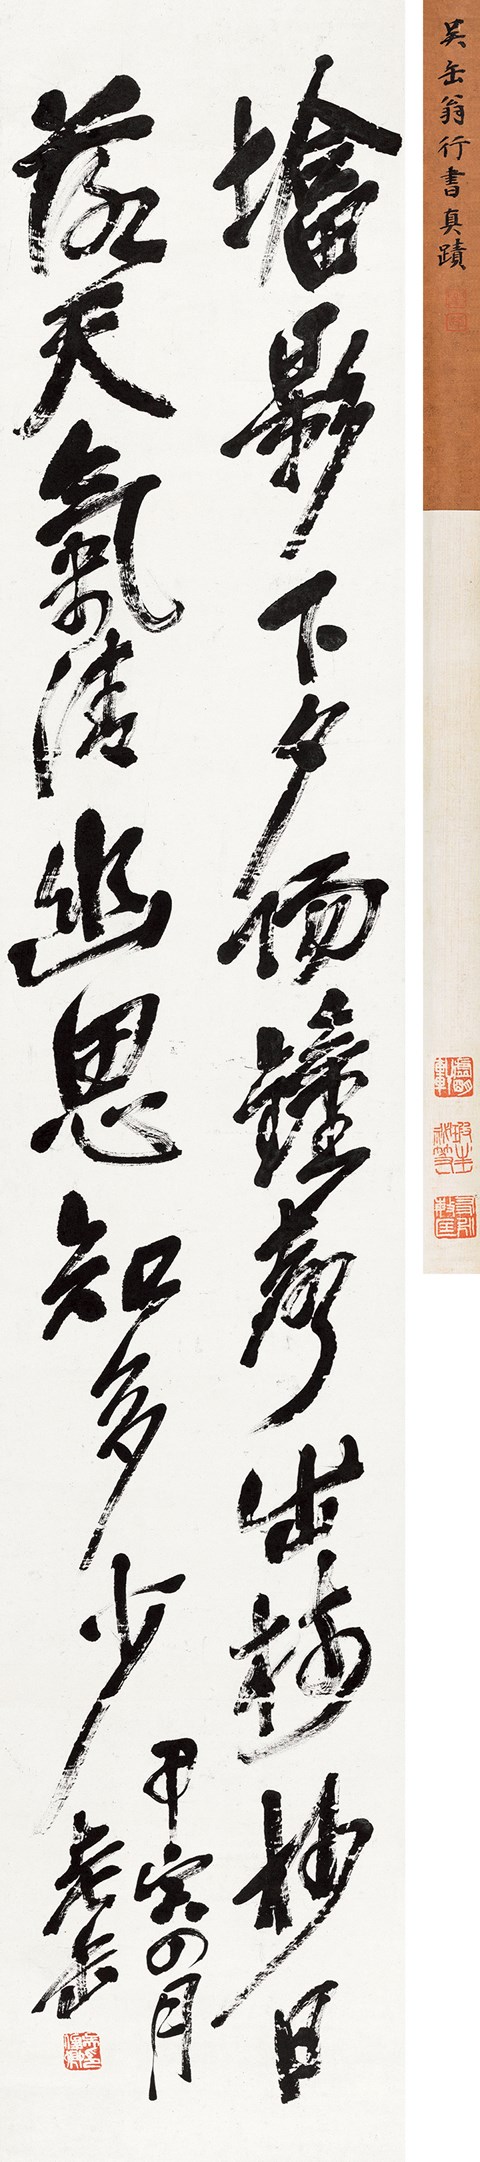 吳缶翁行書真蹟
墖影下夕陽鐘聲出杪日
落天氣清幽思知多少
甲寅四月
老缶